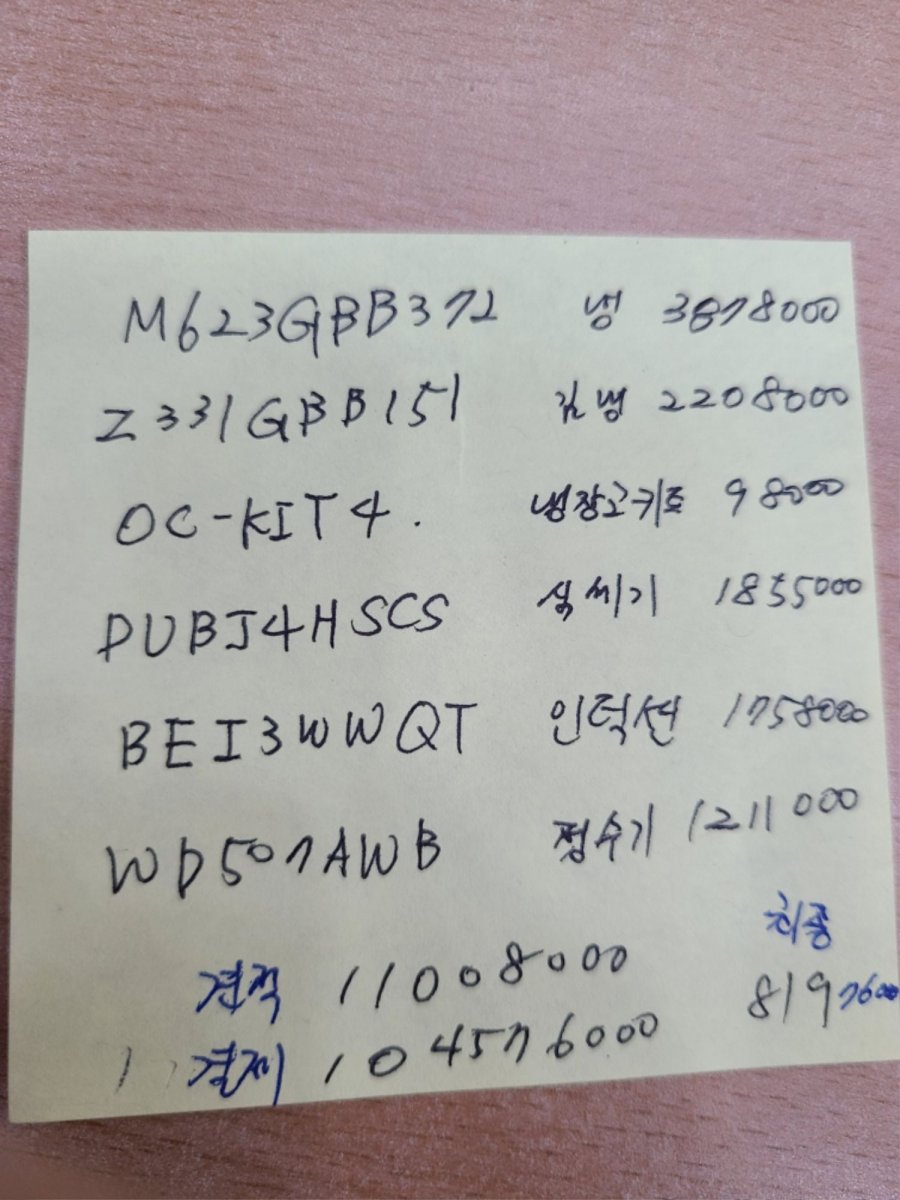 M623GBB372 냉 3878000
Z331GBB151 김냉 2208000
OC-KIT4. 냉장고키트 98000
DUBJ4HSCS 식세기 1855000
BEI3WWQT 인덕션 1758000
WD507AWB 정수기 1211000
견적 11008000 최종
결제 104576000 8197600